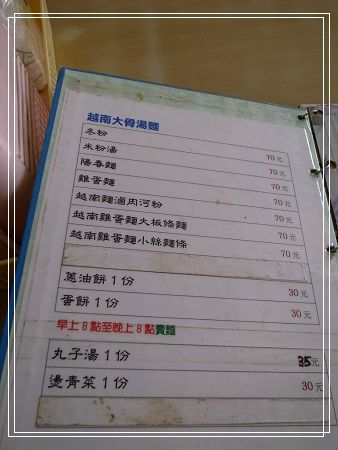 越南大骨湯麵
冬粉 70元
米粉湯 70元
陽春麵 70元
雞蛋麵 70元
越南麵滷肉河粉 70元
越南雞蛋麵大板條麵 70元
越南雞蛋麵小絲麵條 70元
蔥油餅1份 30元
蛋餅1份 30元
早上8點至晚上8點賣麵
丸子湯1份 35元
燙青菜1份 30元